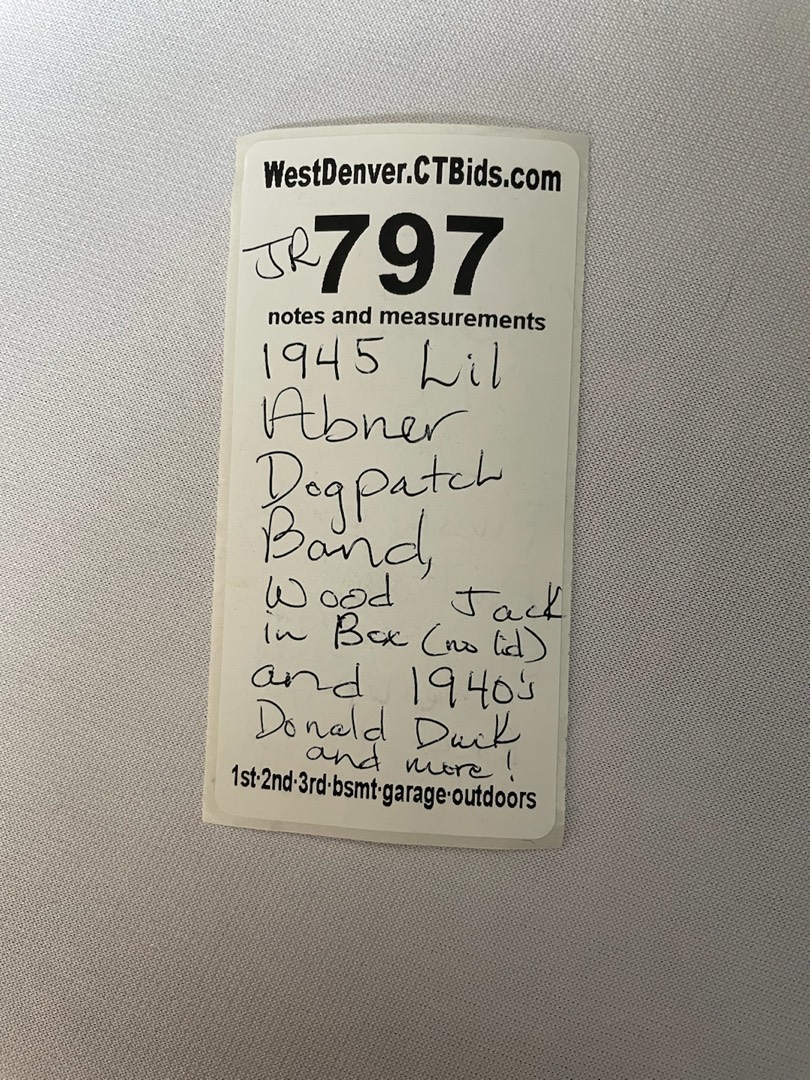 WestDenver.CTBids.com
JR 797
notes and measurements
1945 Lil
Abner
Dogpatch
Band,
Wood Jack
in Box (no lid)
and 1940's
Donald Duck
and more!
1st·2nd·3rd·bsmt·garage·outdoors